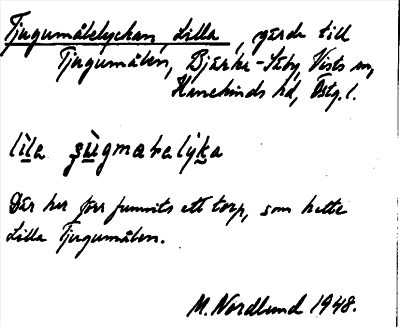 Tjugumålelyckan, Lilla, gärde till
Tjugumålen, Bjärka-Säby, Vists sn,
Hanekinds hd, Östg. l.
lìla
Där har förr funnits ett torp, som hette
Lilla Tjugumålen.
M. Nordlund 1948.